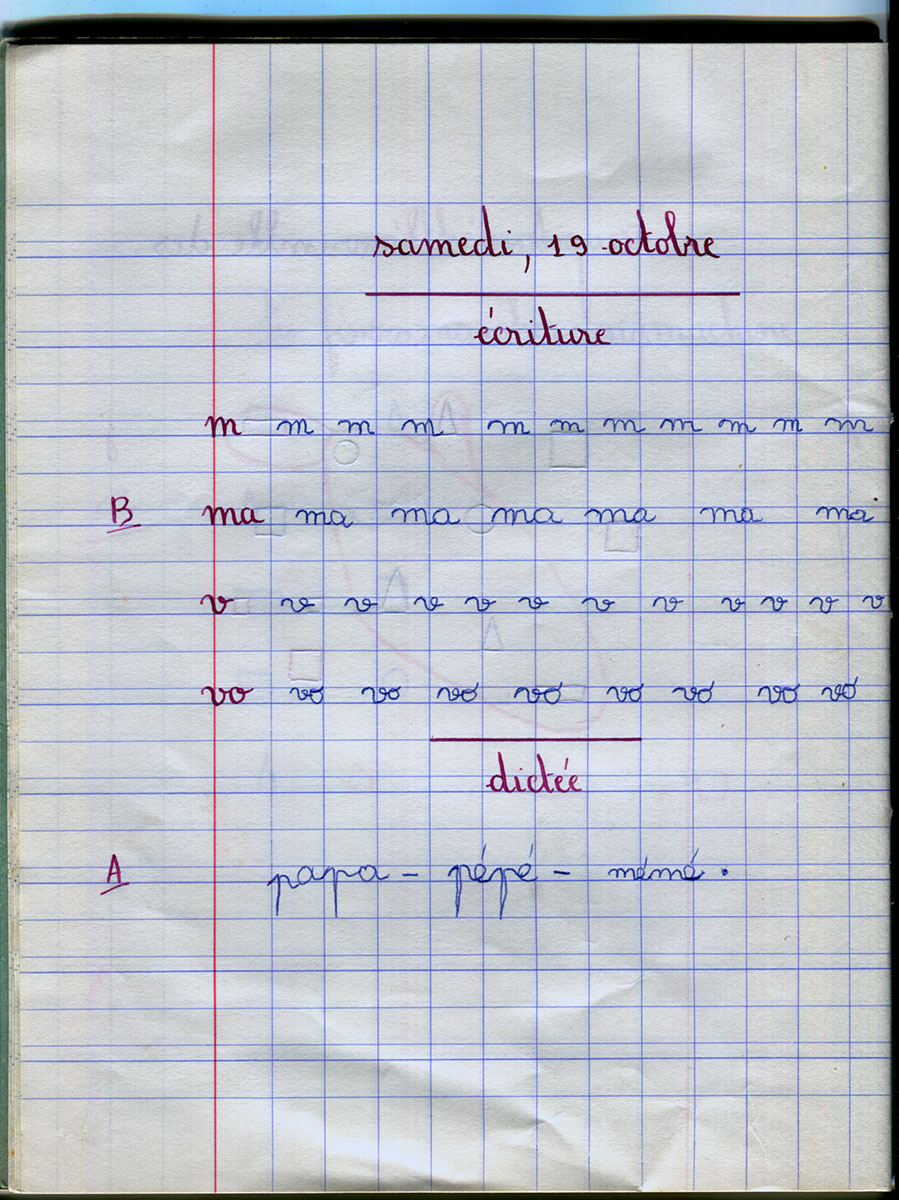 samedi, 19 octobre
écriture
m m m m m m m m m m m
B ma ma ma ma ma ma ma
v v v v v v v v v v v v
vo vo vo vo vo vo vo vo vo
dictée
A papa - pépé - mémé.